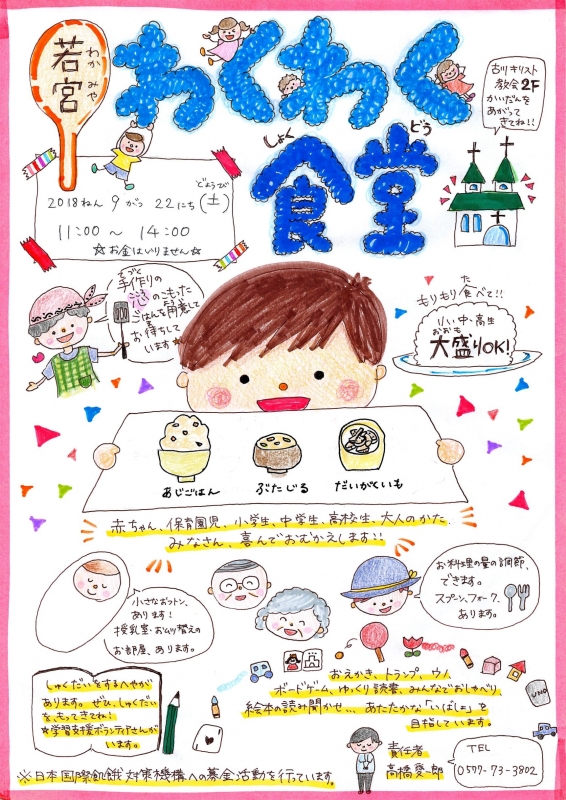 若宮
わか みや
わくわく
しょく どう
食堂
古川キリスト
教会2F
かいだんを
あがって
きてね!!
2018ねん 9がつ 22にち(土)
どようび
11:00 〜 14:00
☆お金はいりません☆
てづく
手作りの
こころ
心のこもった
ごはんを用意して
お待ちして
います☆
もりもり食べて!!
た
小・中・高生
おおも
大盛りOK!
あじごはん
ぶたじる
だいがくいも
赤ちゃん、保育園児、小学生、中学生、高校生、大人のかた
みなさん、喜んでおむかえします!!
小さなおフトン、
あります!
授乳室・おムツ替えの
お部屋、あります。
お料理の量の調節、
できます。
スプーン、フォーク、
あります。
おえかき、トランプ、ウノ、
ボードゲーム、ゆっくり読書、みんなでおしゃべり、
絵本の読み聞かせ... あたたかな「いばしょ」を
目指しています。
UNO
しゅくだいをするへやが
あります。ぜひ、しゅくだい
を、もってきてね!
☆学習支援ボランティアさんが
います。
責任者
高橋愛一郎
TEL
0577-73-3802
※日本国際飢餓対策機構への募金活動を行っています。